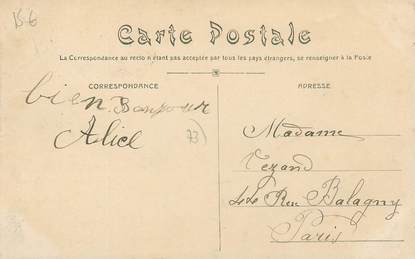 15-6
Carte Postale
La Correspondance au recto n'étant pas acceptée par tous les pays étrangers, se renseigner à la Poste
CORRESPONDANCE
ADRESSE
bien Bonjour
Alice
73)
Madame
Vezand
44 Rue Balagny
Paris